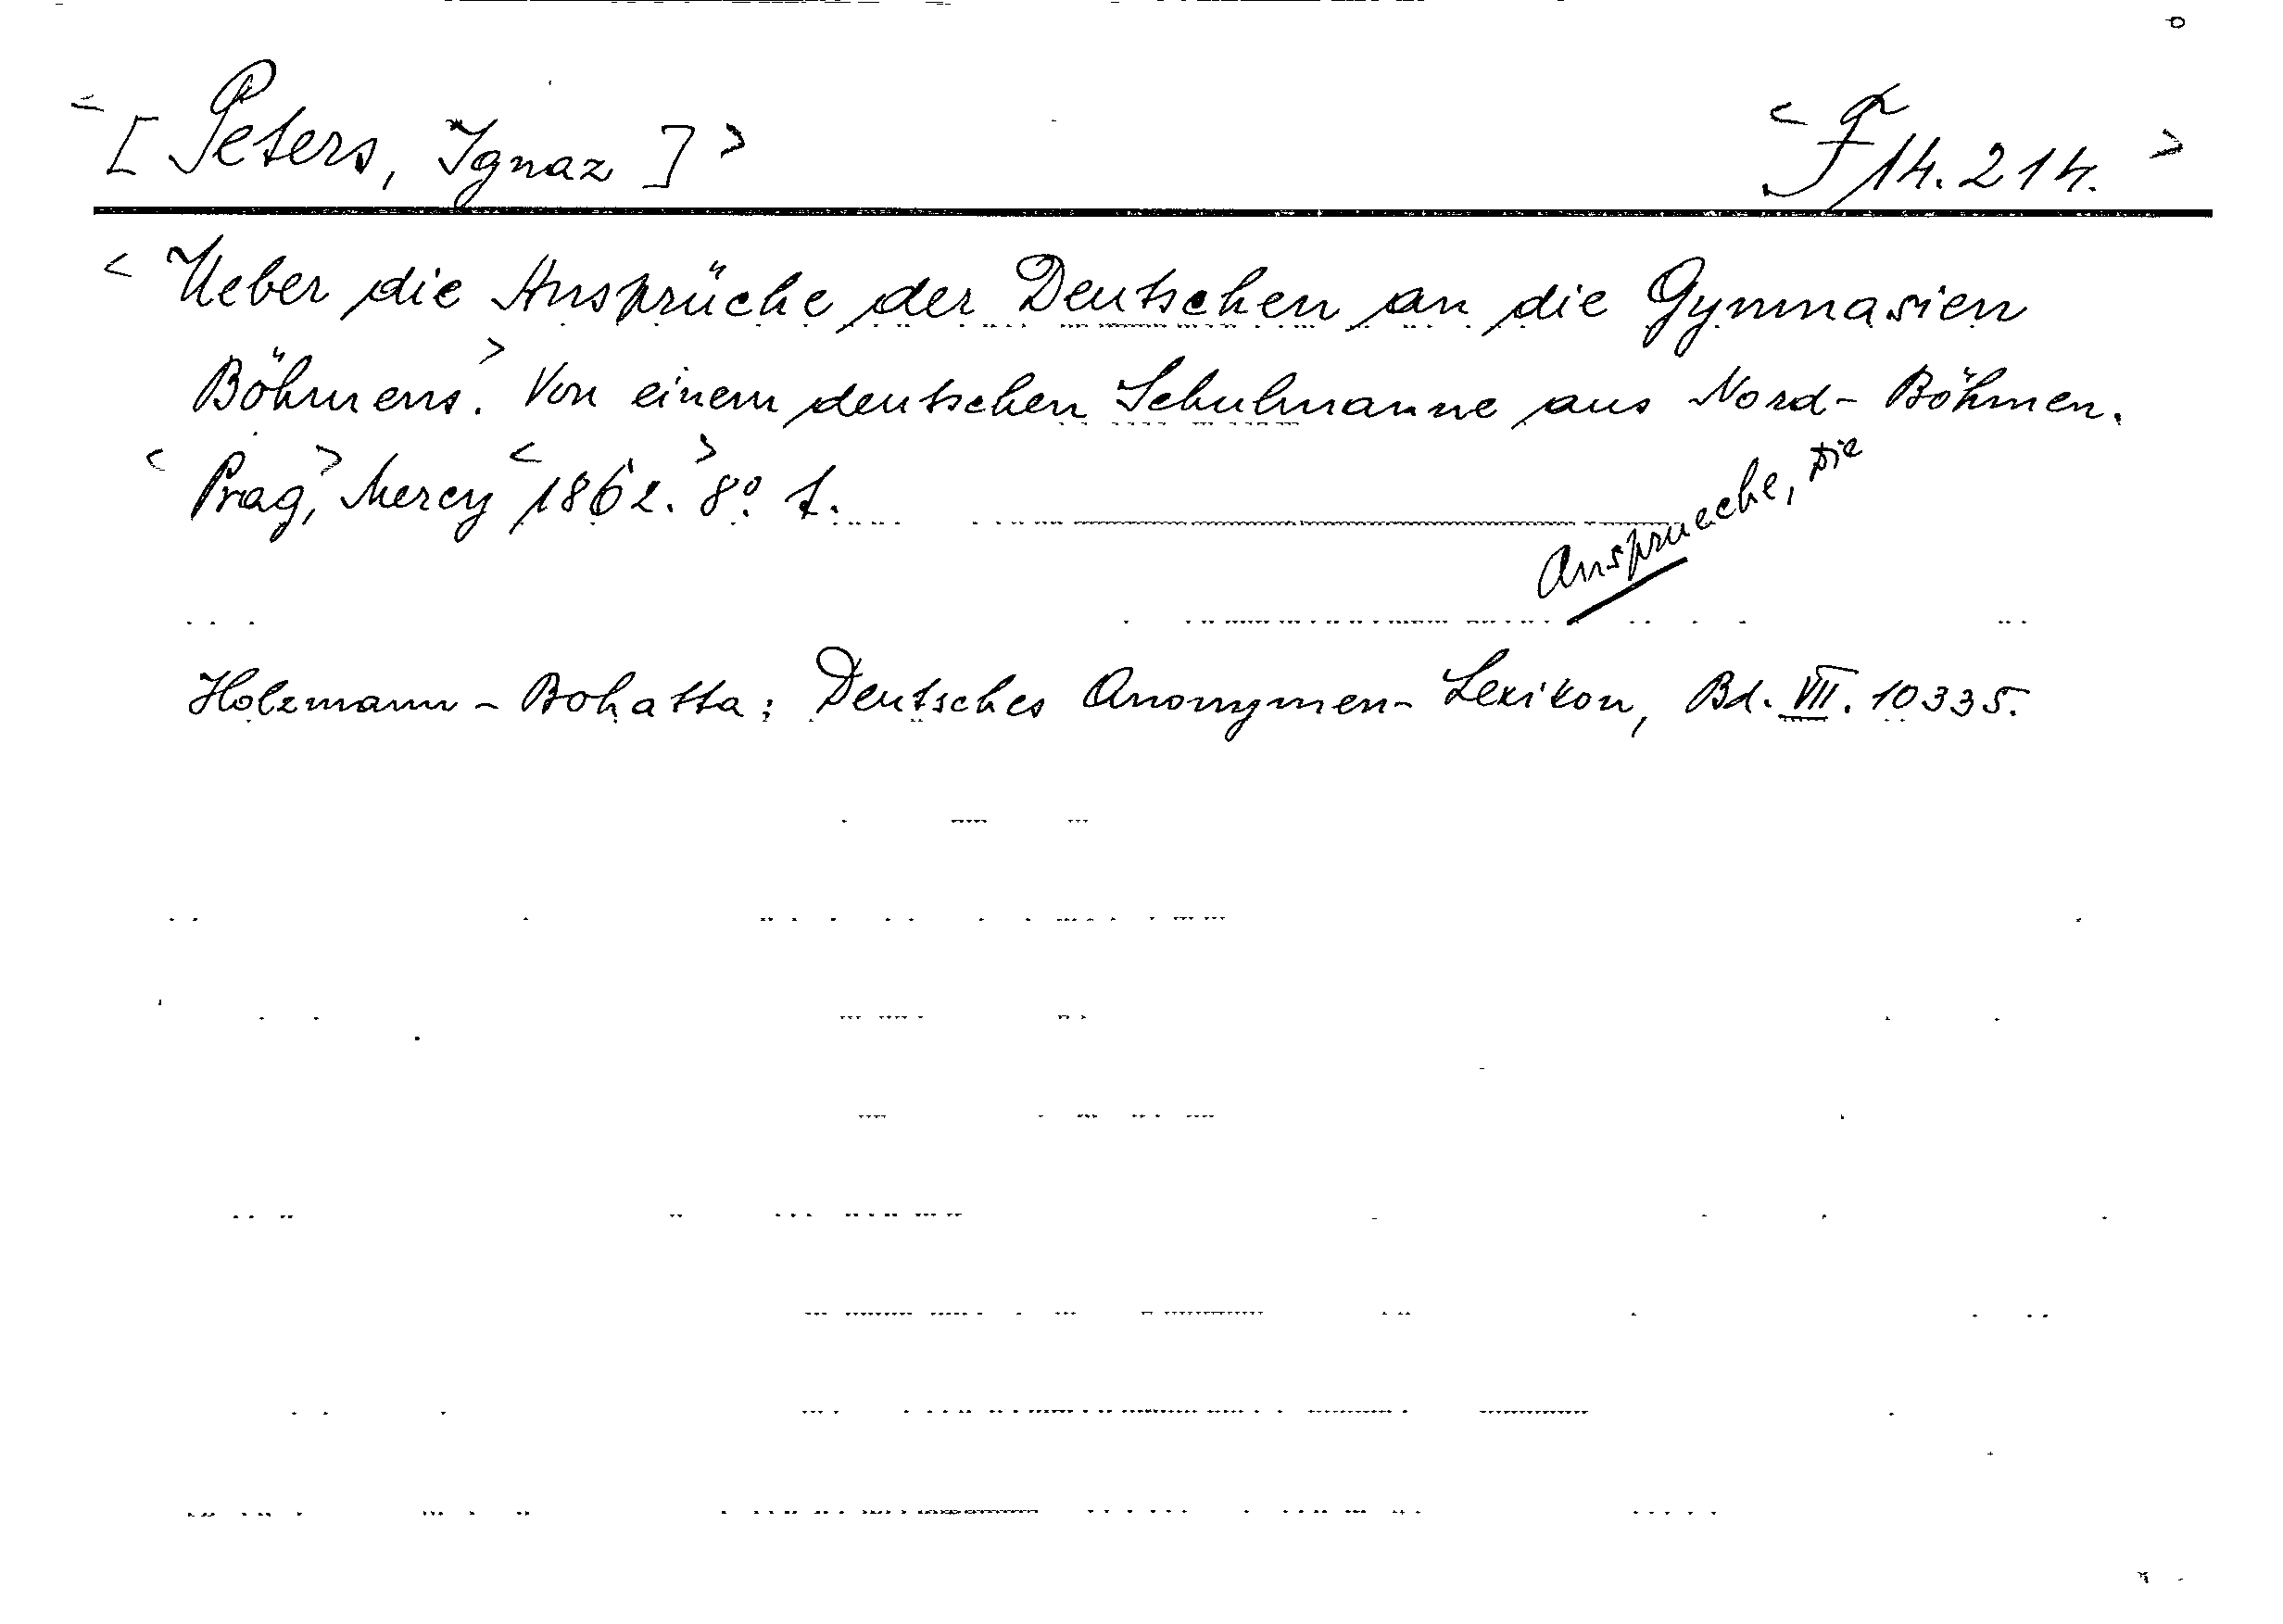 <[Peters, Ignaz]> <F 14.214.>
<Ueber die Ansprüche der Deutschen an die Gymnasien
Böhmens.> Von einem deutschen Schulmanne aus Nord-Böhmen.
<Prag,> Mercy <1862.> 8° 1.
Ansprueche, Die
Holzmann-Bohatta: Deutsches Anonymen-Lexikon, Bd. VII. 10335.